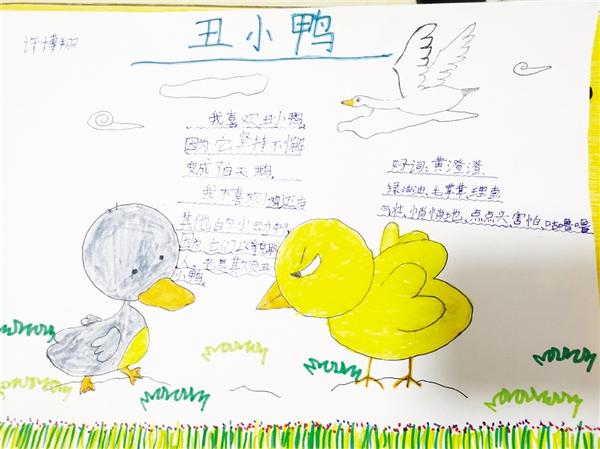 丑小鸭
许博翔
我喜欢丑小鸭,
因为它坚持不懈
变成白天鹅.
我不喜欢小鸡还有
其他的小动物,
因为它们以貌取
人,老是欺负丑
小鸭.
好词:黄澄澄.
绿油油.毛茸茸.理直
气壮.悄悄地.点点头.害怕.咕噜噜